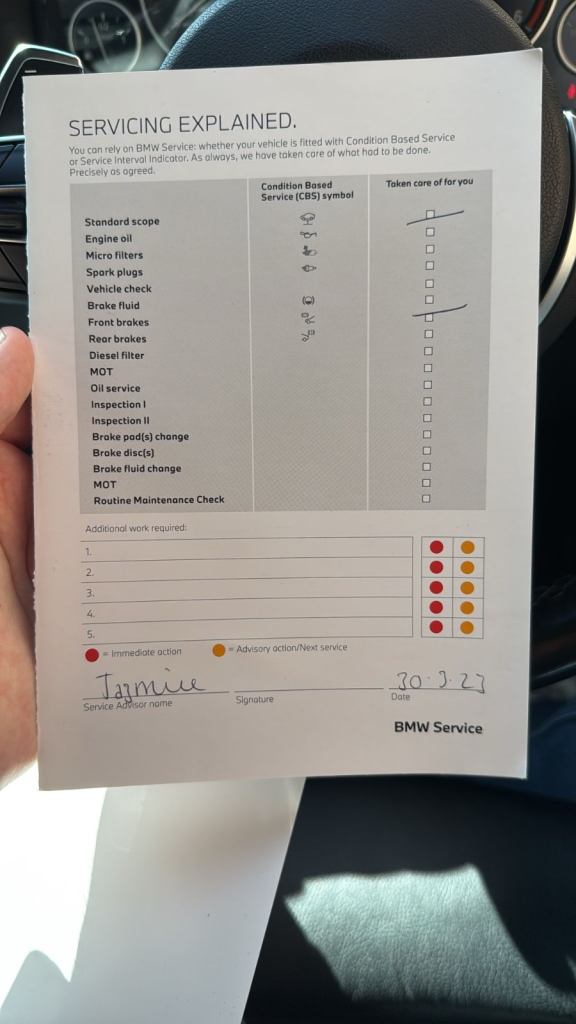 SERVICING EXPLAINED.
You can rely on BMW Service: whether your vehicle is fitted with Condition Based Service
or Service Interval Indicator. As always, we have taken care of what had to be done.
Precisely as agreed.
Condition Based
Service (CBS) symbol
Taken care of for you
Standard scope
Engine oil
Micro filters
Spark plugs
Vehicle check
Brake fluid
Front brakes
Rear brakes
Diesel filter
MOT
Oil service
Inspection I
Inspection II
Brake pad(s) change
Brake disc(s)
Brake fluid change
MOT
Routine Maintenance Check
Additional work required:
1.
2.
3.
4.
5.
= Immediate action = Advisory action/Next service
30.9.23
Service Advisor name Signature Date
BMW Service